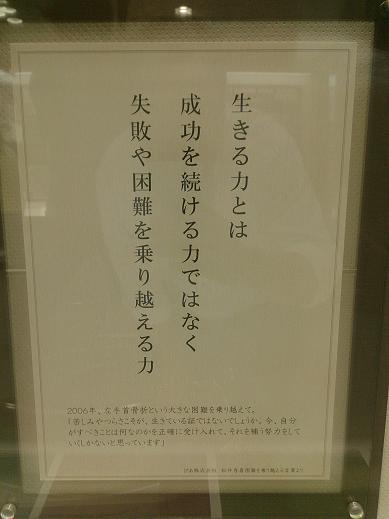 生きる力とは
成功を続ける力ではなく
失敗や困難を乗り越える力
2006年、左手首骨折という大きな困難を乗り越えて。
「苦しみやつらさこそが、生きている証ではないでしょうか。今、自分
がすべきことは何なのかを正確に受け入れて、それを補う努力をして
いくしかないと思っています」
ぴあ株式会社 松井秀喜困難を乗り越える言葉より